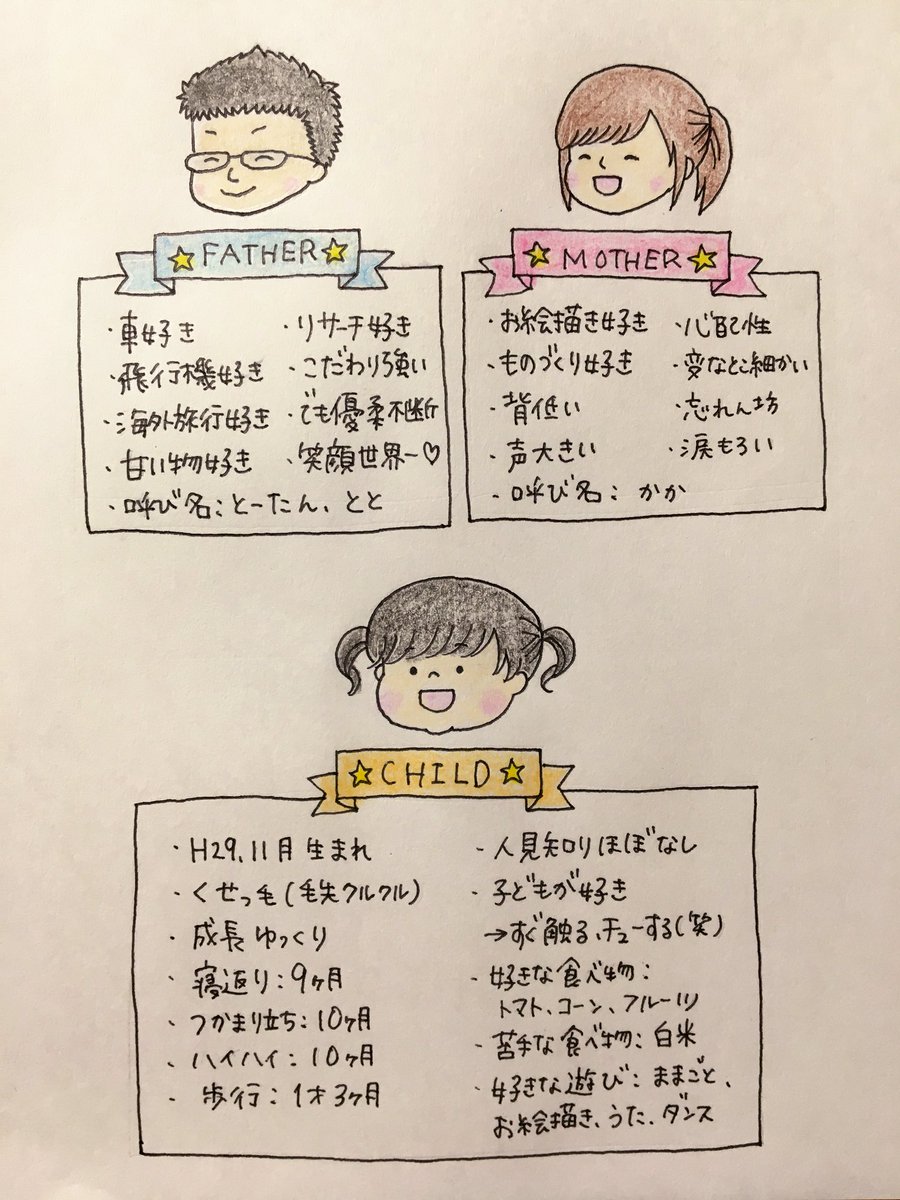 FATHER
・車好き
・飛行機好き
・海外旅行好き
・甘い物好き
・リサーチ好き
・こだわり強い
・でも優柔不断
・笑顔世界一♡
・呼び名：とーたん、とと
MOTHER
・お絵描き好き
・ものづくり好き
・背低い
・声大きい
・心配性
・変なとこ細かい
・忘れん坊
・涙もろい
・呼び名：かか
CHILD
・H29.11月生まれ
・くせっ毛(毛先クルクル)
・成長ゆっくり
・寝返り：9ヶ月
・つかまり立ち：10ヶ月
・ハイハイ：10ヶ月
・歩行：1才3ヶ月
・人見知りほぼなし
・子どもが好き
→すぐ触る、チューする(笑)
・好きな食べ物：
トマト、コーン、フルーツ
・苦手な食べ物：白米
・好きな遊び：ままごと、
お絵描き、うた、ダンス